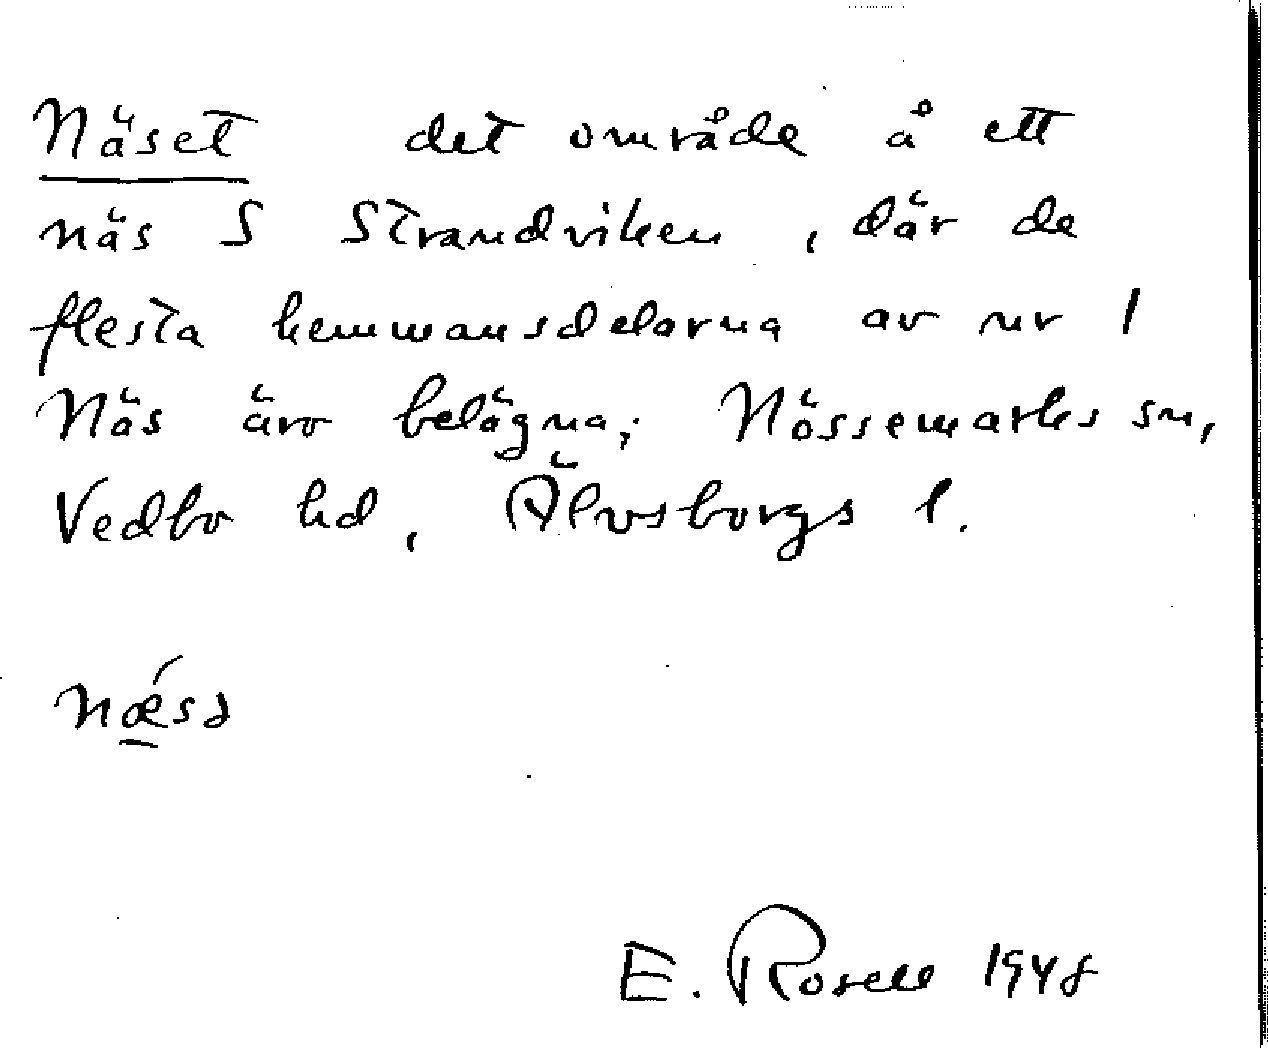 Näset det område å ett
näs S Strandviken, där de
flesta hemmansdelarna av nr 1
Näs äro belägna; Nössemarks sn,
Vedbo hd, Älvsborgs l.
nǽ̱sə
E. Rosell 1948